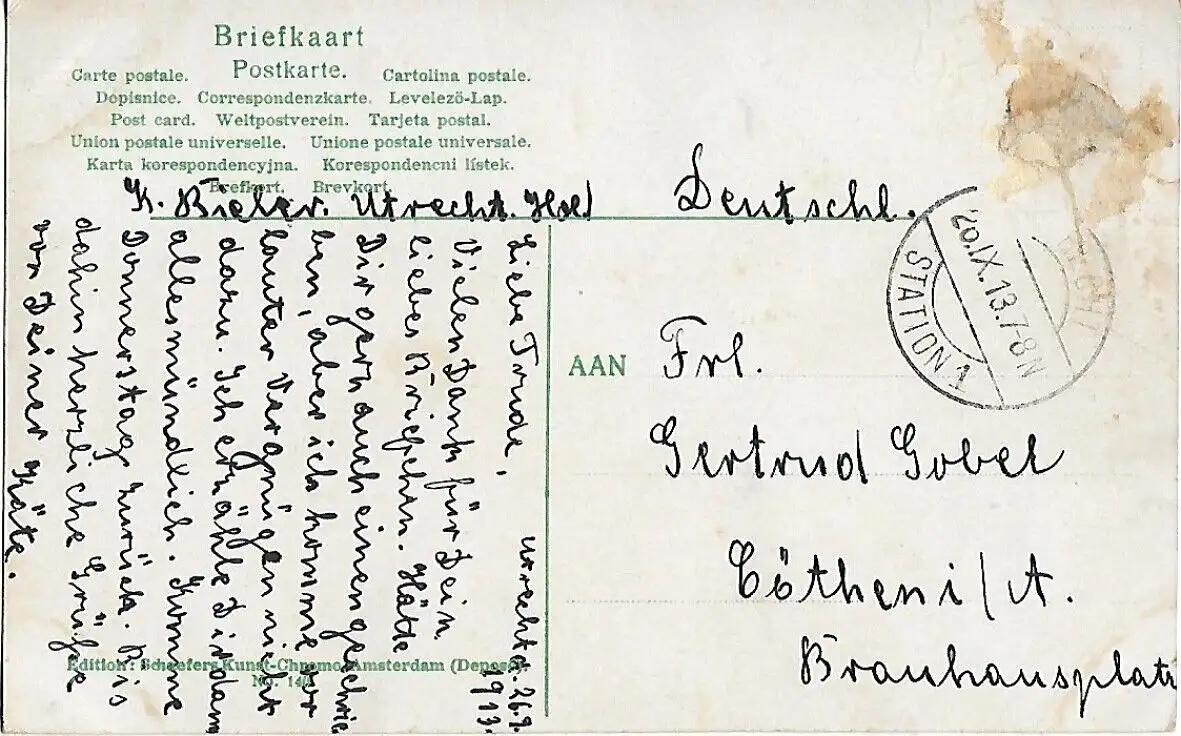 Briefkaart
Postkarte.
Carte postale. Cartolina postale.
Dopisnice. Correspondenzkarte. Levelezö-Lap.
Post card. Weltpostverein. Tarjeta postal.
Union postale universelle. Unione postale universale.
Karta korespondencyjna. Korespondencni lístek.
Brefkort. Brevkort.
K. Bieler. Utrecht. Holl
Deutschl.
STATION
26.IX.13.7-8N
AAN Frl.
Gertrud Gobel
Cöthen i/A.
Brauhausplatz
Utrecht. 26.9.
1913.
Liebe Trude,
Vielen Dank für Dein
liebes Briefchen. Hätte
Dir gern auch einen geschrie
ben, aber ich komme vor
lauter Vergnügen nicht
dazu. Ich erzähle Dir dann
alles mündlich. Komme
Donnerstag zurück. Bis
dahin herzliche Grüße
von Deiner Käte.
Edition: Schaefers Kunst-Chromo, Amsterdam
No.